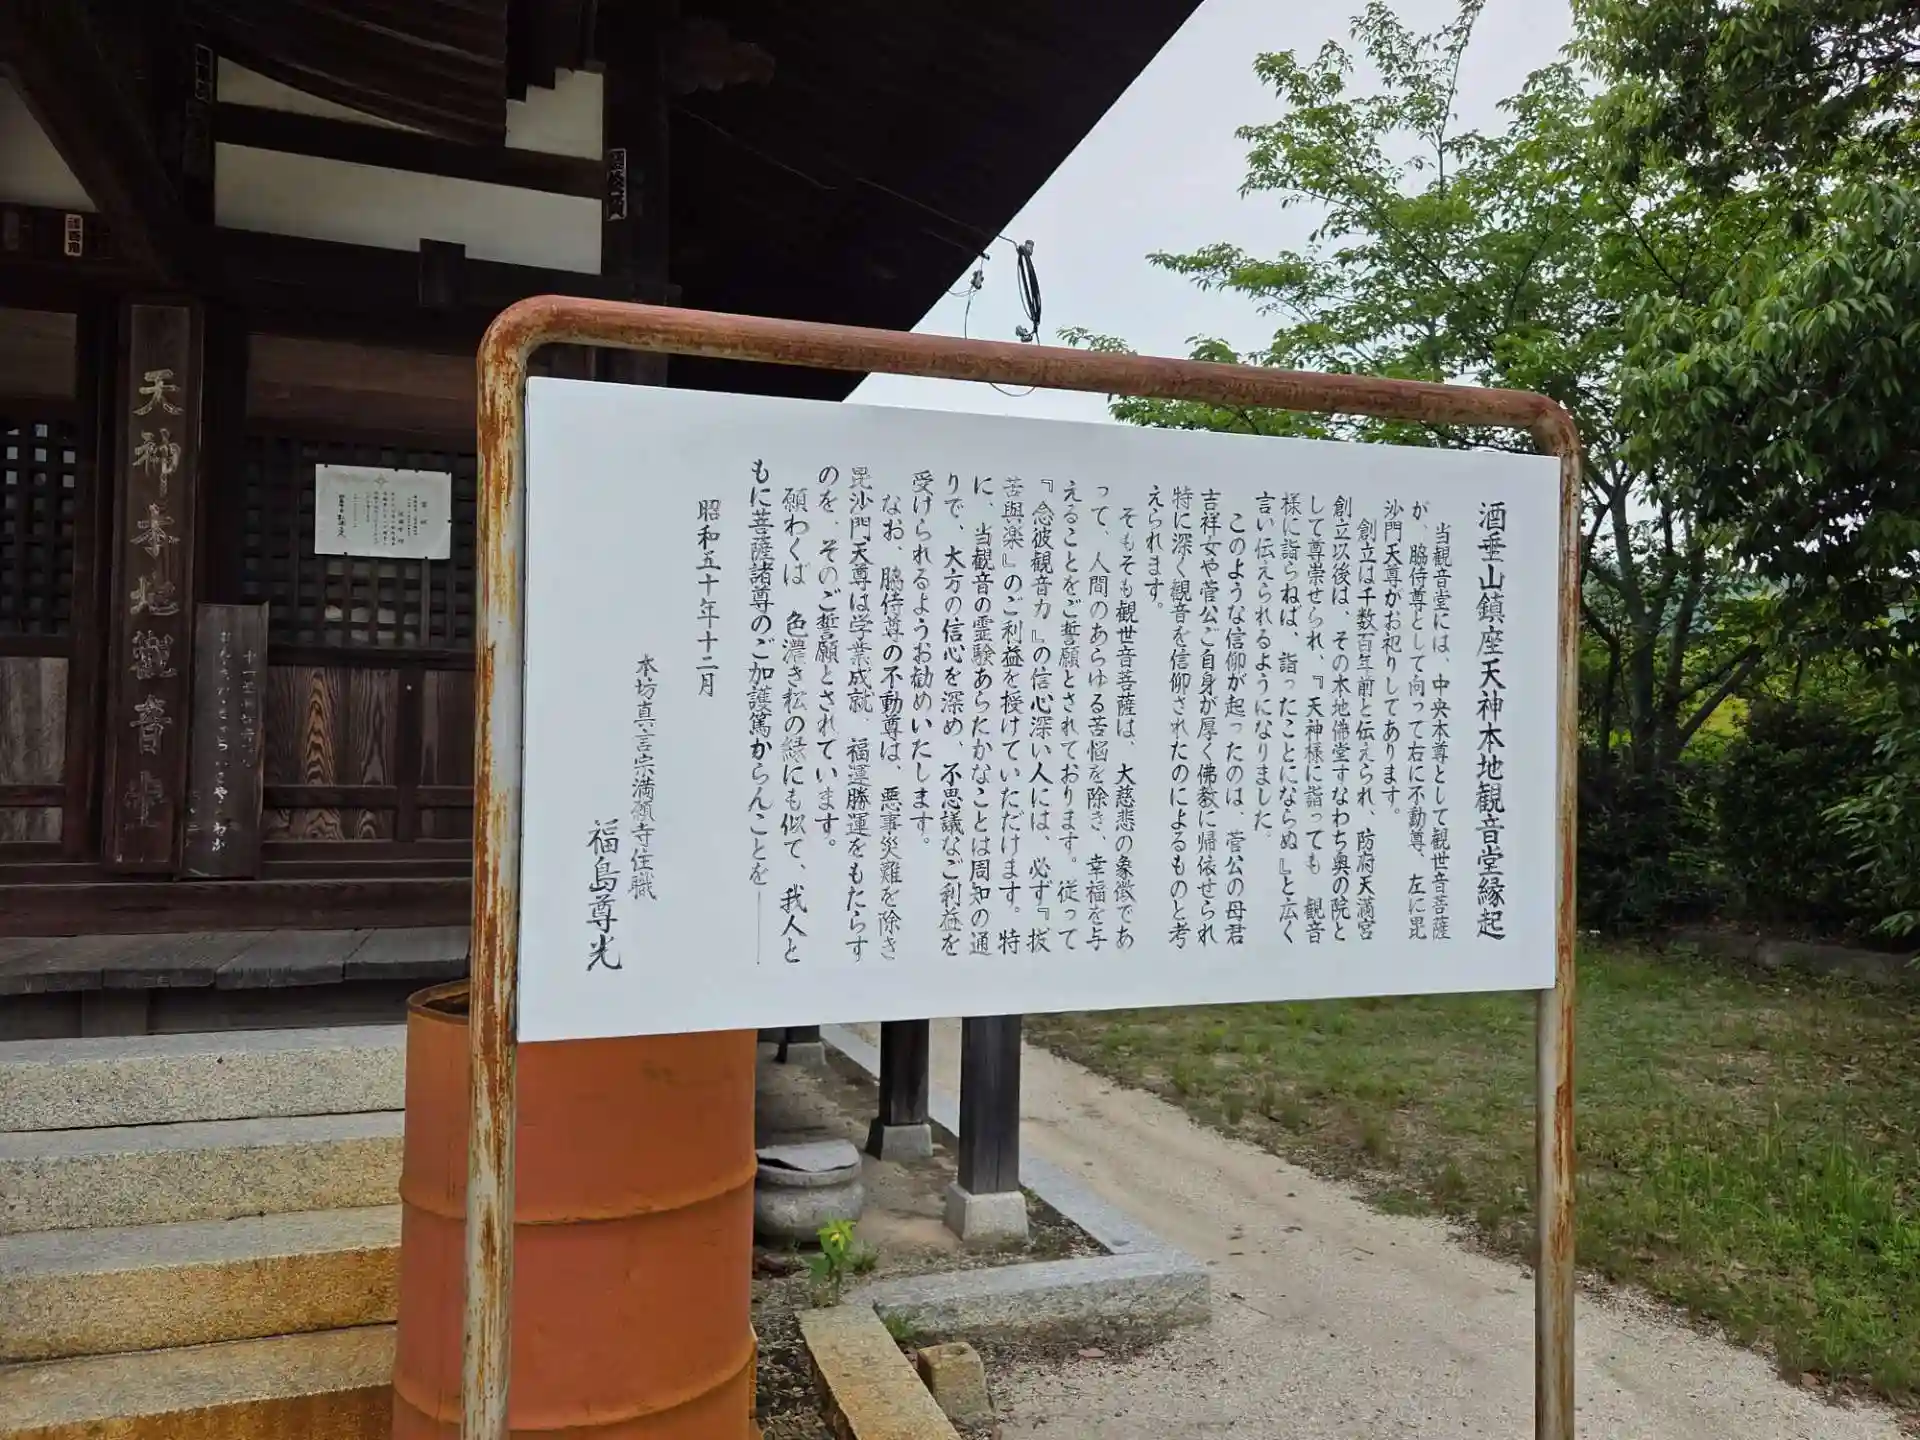 酒垂山鎮座天神本地観音堂縁起
当観音堂には、中央本尊として観世音菩薩
が、脇侍尊として向って右に不動尊、左に毘
沙門天尊がお祀りしてあります。
創立は千数百年前と伝えられ、防府天満宮
創立以後は、その本地佛堂すなわち奥の院と
して尊崇せられ、『天神様に詣っても 観音
様に詣らねば、詣ったことにならぬ』と広く
言い伝えられるようになりました。
このような信仰が起ったのは、菅公の母君
吉祥女や菅公ご自身が厚く佛教に帰依せられ
特に深く観音を信仰されたのによるものと考
えられます。
そもそも観世音菩薩は、大慈悲の象徴であ
って、人間のあらゆる苦悩を除き、幸福を与
えることをご誓願とされております。従って
『念彼観音力』の信心深い人には、必ず『抜
苦與楽』のご利益を授けていただけます。特
に、当観音の霊験あらたかなことは周知の通
りで、大方の信心を深め、不思議なご利益を
受けられるようお勧めいたします。
なお、脇侍尊の不動尊は、悪事災難を除き
毘沙門天尊は学業成就、福運勝運をもたらす
のを、そのご誓願とされています。
願わくば 色濃き松の緑にも似て、我人と
もに菩薩諸尊のご加護篤からんことを――
昭和五十年十二月
本坊真言宗満願寺住職
福島尊光
天神本地觀音堂